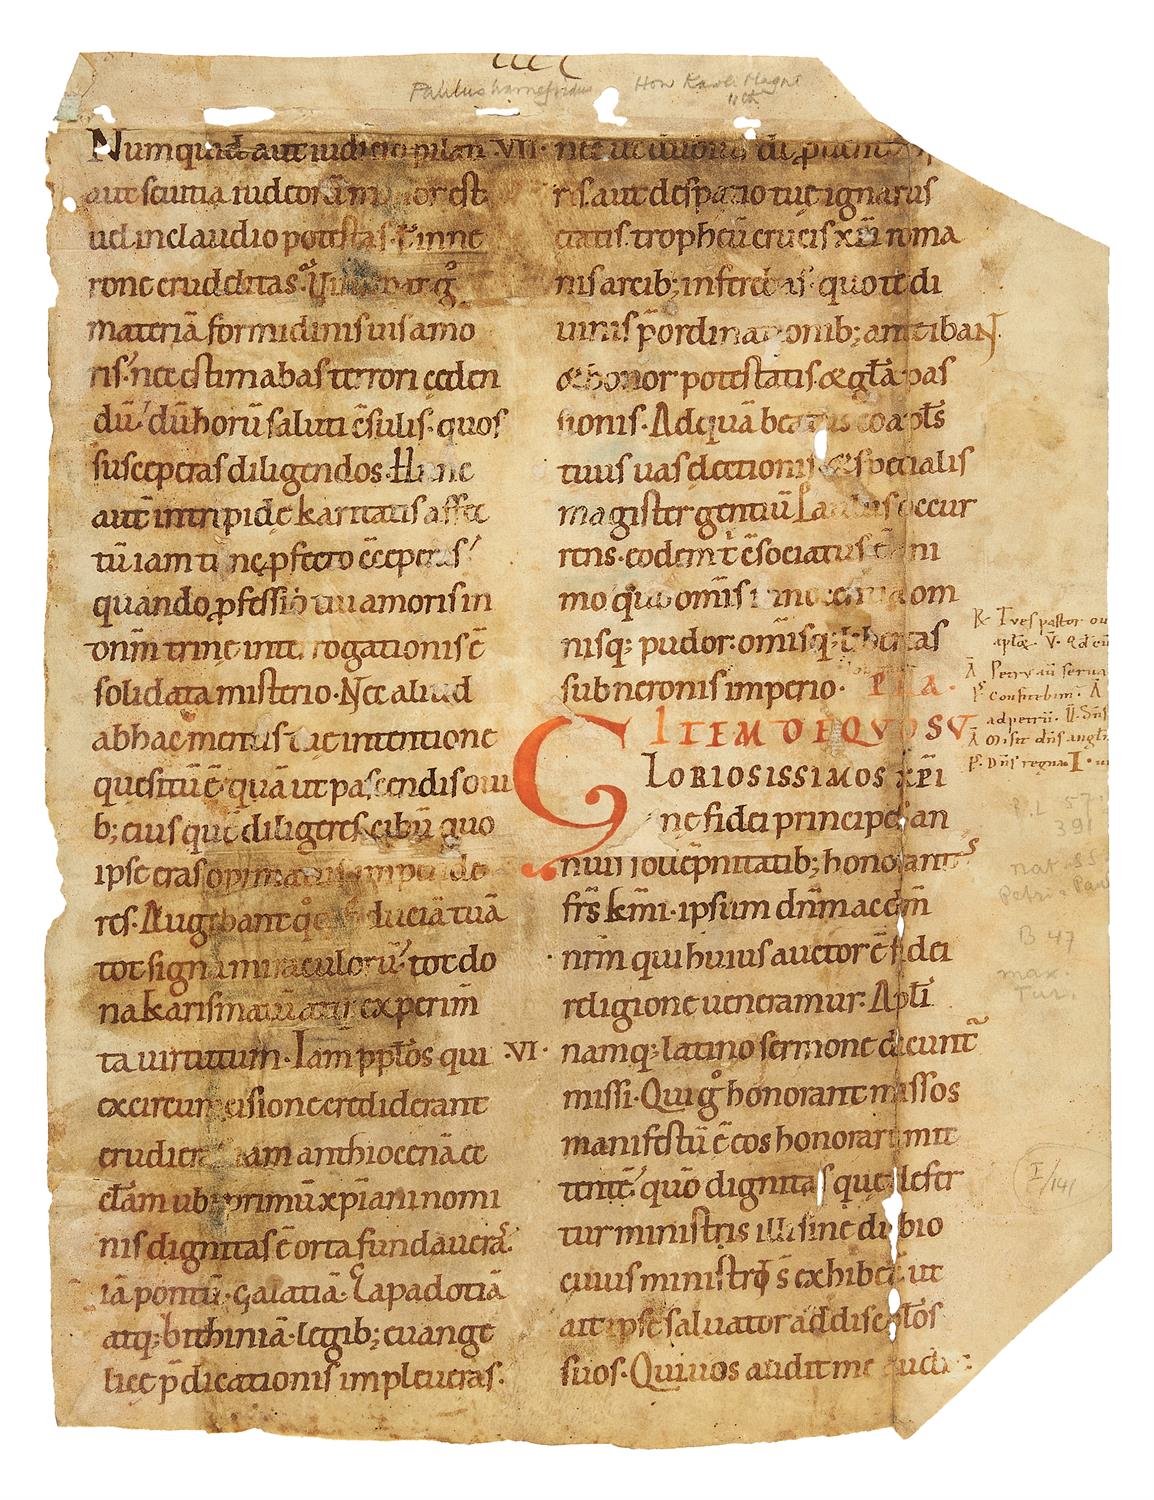 Paulus warnefridus Hom Karoli Magni
Numquid aut iudicio pilati ·VII·
aut seuitia iudeorum minor est
ud inclaudio potestas· t inne
rone crudelitas·
materiā formidinis uis amo
ris· nec estimabas terrori ceden
dū· dū horū saluti c̄sulis· quos
susceperas diligendos· Hunc
aut intrepide karitatis affec
tū iam tunc ꝓfecto c̄ceperas·
quando ꝓfessio tui amoris in
dn̄m trine interrogationis ē
solidata misterio· Nec aliud
ab hac mentis tue intentione
quesitū ē· quā ut pascendis oui
b; eius quē diligeres cibū quo
ipse eras opimatus impende
res· Augebant q̊ fiduciā tuā
tot signa miraculorū· tot do
na karismatū tot experim̄
ta uirtutum· Iam ppl̄os qui ·VI·
ex circumcisione crediderant
erudieras iam anthiocenā ec
cl̄am ubi primū xp̄iani nomi
nis dignitas ē orta fundaueras·
iā pontū· galatiā· Capadotiā
atq; bithiniā· legib; euange
licę p̄dicationis impleueras·
nec ut dubius di
ris· aut de spatio tuę ignarus
etatis· tropheū crucis xp̄i roma
nis arcib; inferebas· quo te di
uinis p̄ordinationib; anteibaN
& honor potestatis & gl̄a pas
sionis· Ad quā beatus coapl̄s
tuus uas electionis & specialis
magister gentiū Paulus occur
rens· eodem t̄ c̄sociatus est ani
mo quo om̄is innocentia om
nis q; pudor· om̄is q; libertas
sub neronis imperio·
ITEM DE QVO SV
Gloriosissimos xp̄i
anę fidei principes an
nuis sollēpnitatib; honorantes
fr̄s km̄i· ipsum dn̄m ac dm̄
nr̄m qui huius auctor ē fidei
religione ueneramur· Apl̄i
namq; latino sermone dicunt̃
missi· Qui g̊ honorant missos
manifestū ē eos honorare mit
tentē· quō dignitas quę defer
tur ministris illi sine dubio
cuius ministris exhibet̃· ut
ait ipse saluator ad discipl̄os
suos· Qui uos audit me audit·
R· Tu es pastor ou
aplōꝝ· V·
Ā Petrus serua
Ps Confitebim· Ā
ad petrū·
Ā Misit dn̄s angl̄
Ps Dn̄s regna
P.L 57
391
nat. SS.
Petri & Pauli
B 47
max.
Tur.
I/141